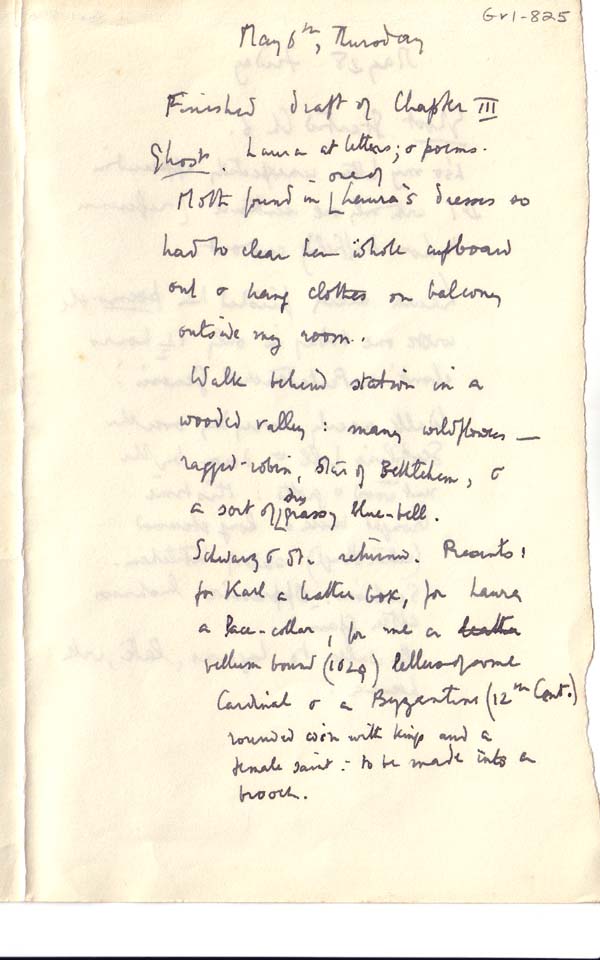 Gr1-825
May 6th, Thursday
Finished draft of Chapter III
Ghost. Laura at letters; & poems.
one of
Moth found in Laura's dresses so
had to clear her whole cupboard
out & hang clothes on balcony
outside my room.
Walk behind station in a
wooded valley: many wildflowers —
ragged-robin, Star of Bethlehem, &
a sort of grassy blue-bell.
Schwarz & returned. Presents:
for Karl a leather box, for Laura
a lace-collar, for me a leather
vellum bound (1629) letters of some
Cardinal & a Byzantine (12th Cent.)
rounded coin with kings and a
female saint: - to be made into a
brooch.